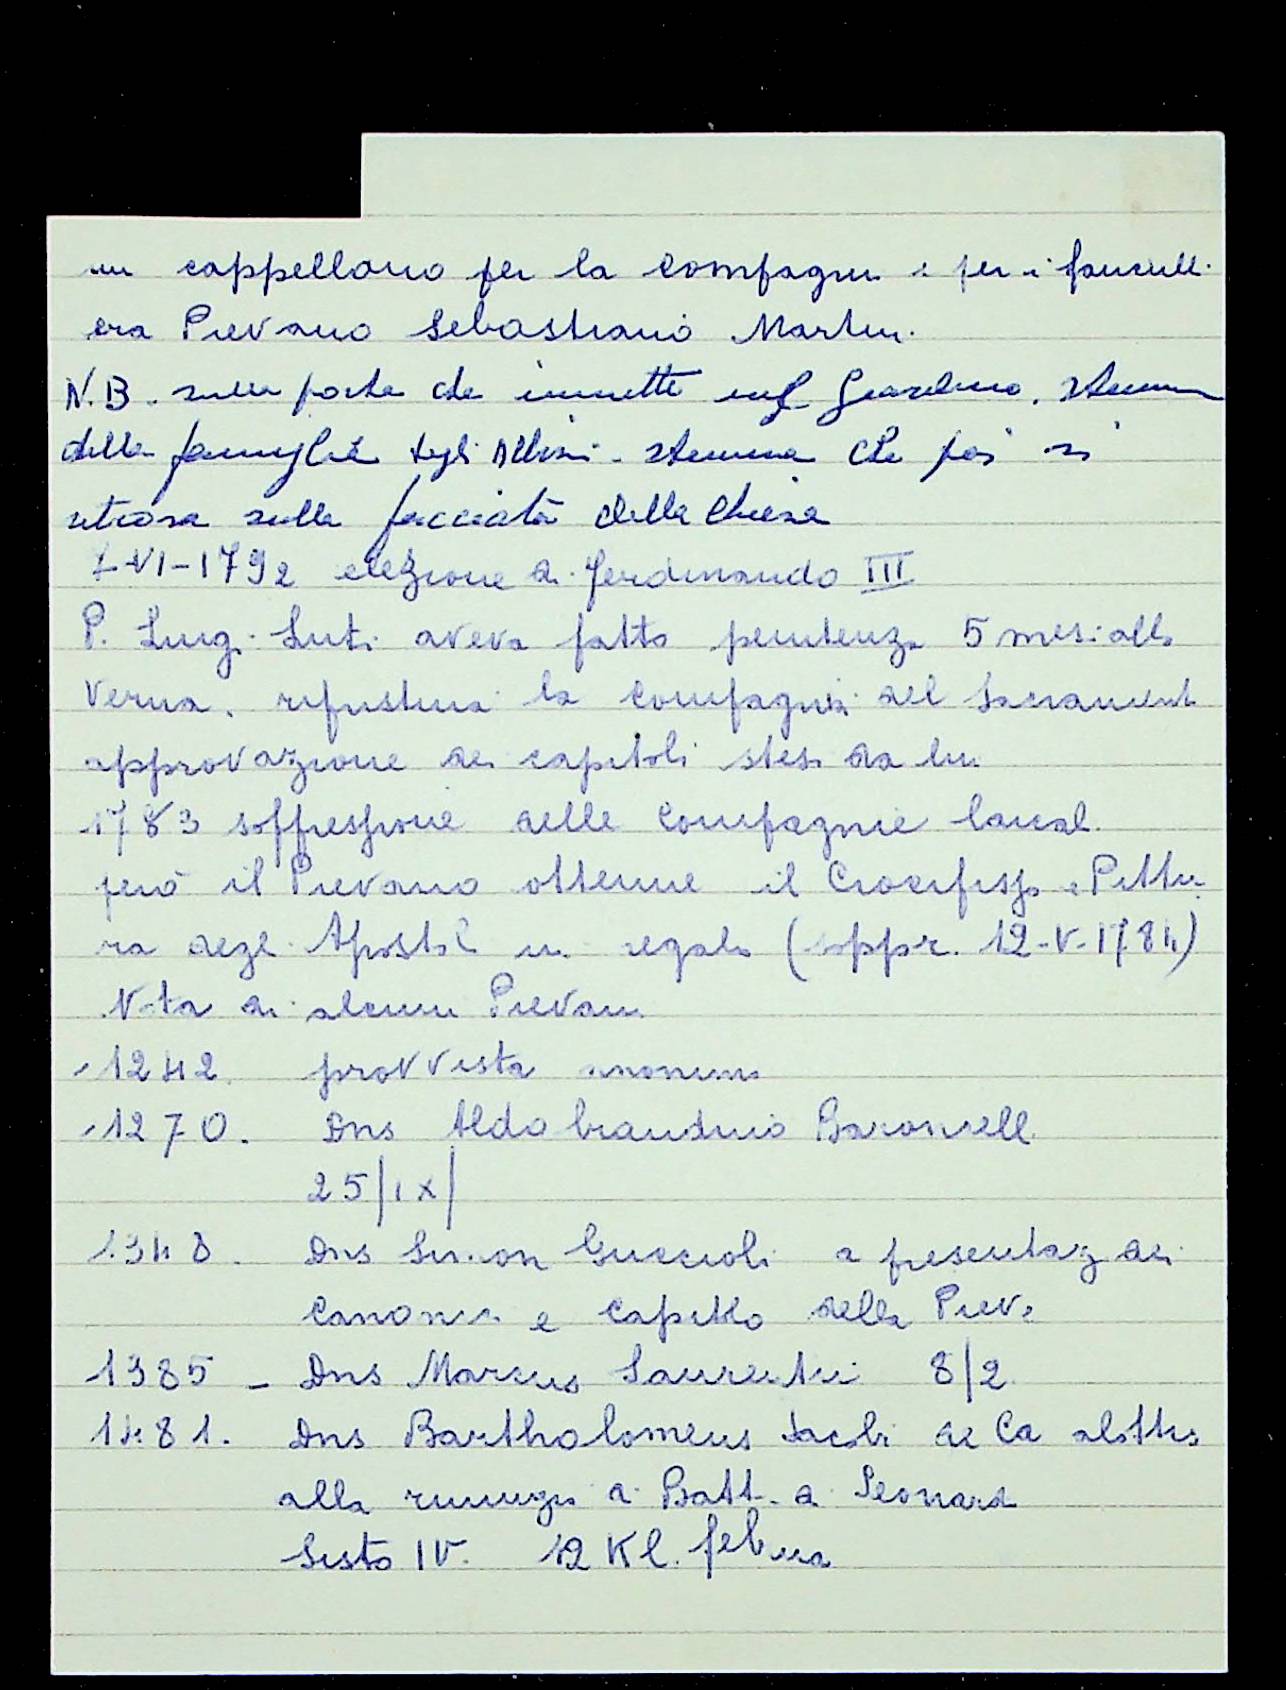 un cappellano per la compagnia e per i fanciulli
era Pievano Sebastiano Martini
N.B. sulla porta che immette nel Giardino, stemma
della famiglia degli Albizi - stemma che poi si
ritrova sulla facciata della chiesa
7-VI-1792 elezione di Ferdinando III
P. Luigi Luti aveva fatto penitenza 5 mesi alla
Verna. ripristina la Compagnia del Sacramento
approvazione dei capitoli stesi da lui
1783 soppressione delle Compagnie laical.
però il Pievano ottenne il Crocifisso e Pittu
ra degli Apostoli in regalo (soppr. 12-V-1784)
Nota di alcuni Pievani
1242. provvista anonima
1270. Dns Aldobrandino Baroncelli
25/IX/
1348. Dns Simon Guccioli a presentaz dei
canonici e capitolo della Pieve
1385 - Dns Marcus Laurentii 8/2
1481. Dns Bartholomeus Jacobi de
alla rinunzia di Batt. di Leonard
Sisto IV. 12 Kl. febru